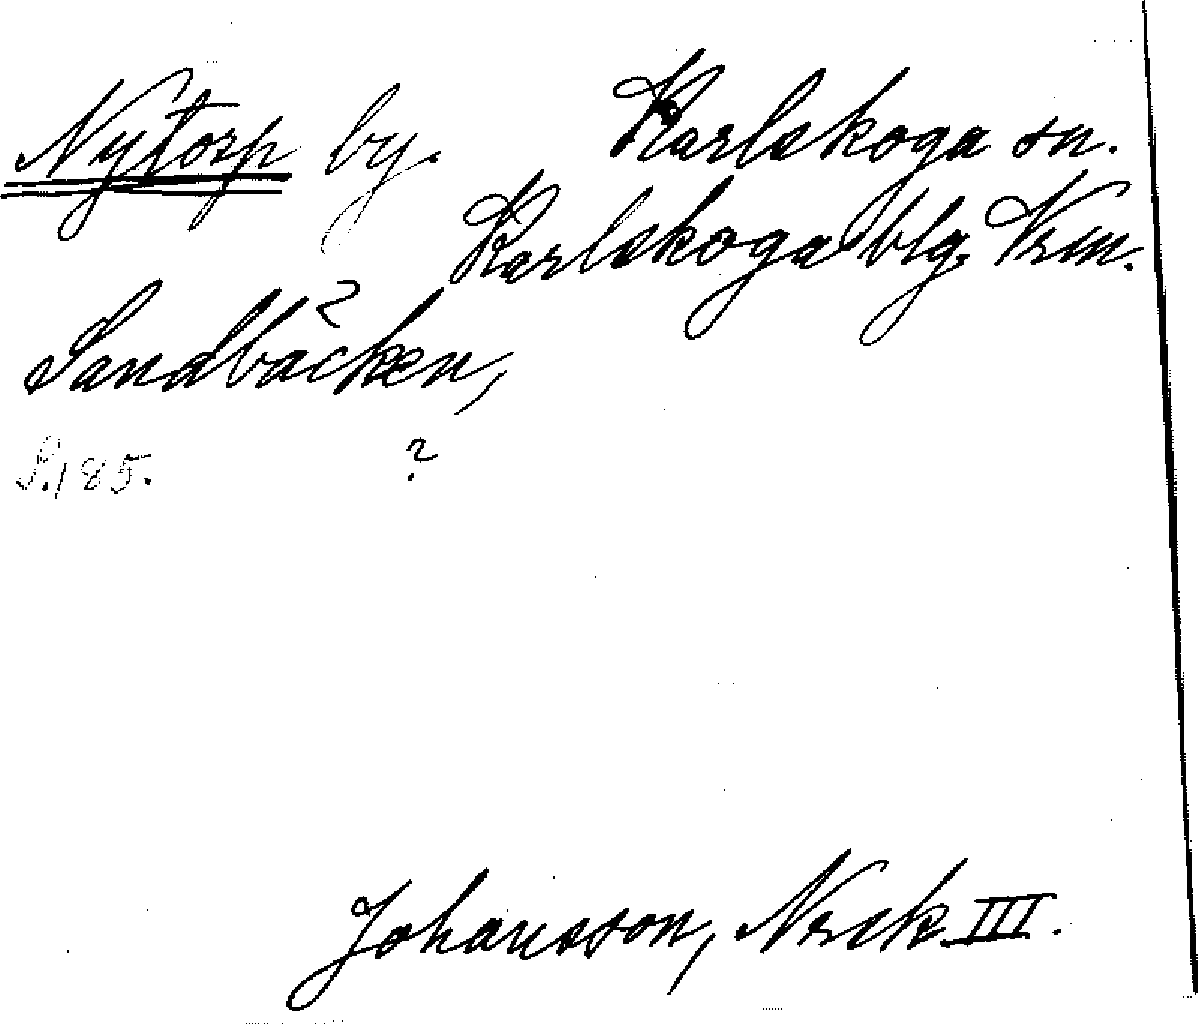 Nytorp by. Karlskoga sn.
Karlskoga blg. Vrm.
Sandbäcken,
S. 185. ?
Johansson, Nrck III.